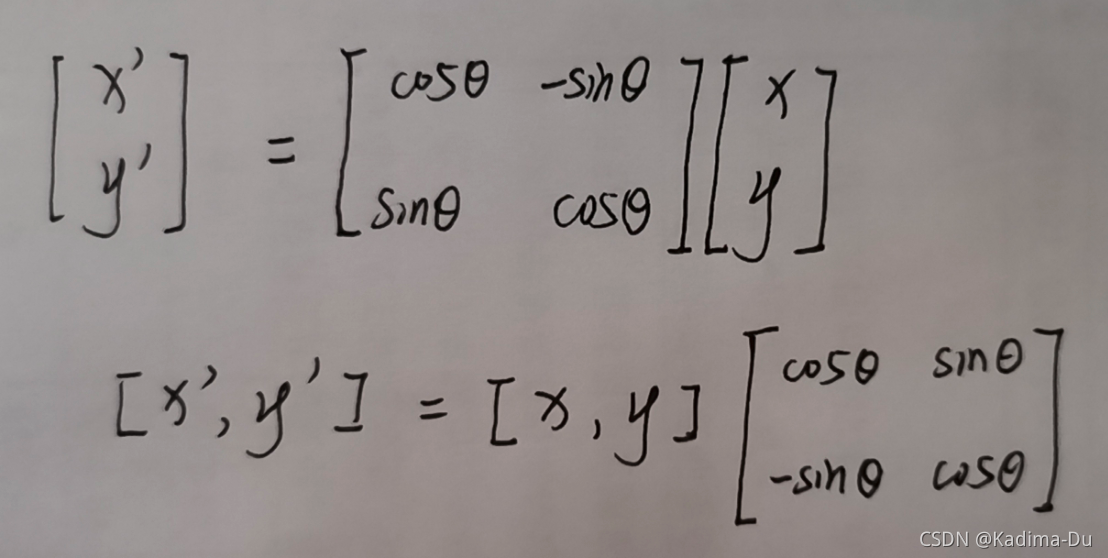 [x' y'] = [cosθ -sinθ sinθ cosθ] [x y]
[x', y'] = [x, y] [cosθ sinθ -sinθ cosθ]
CSDN @Kadima-Du